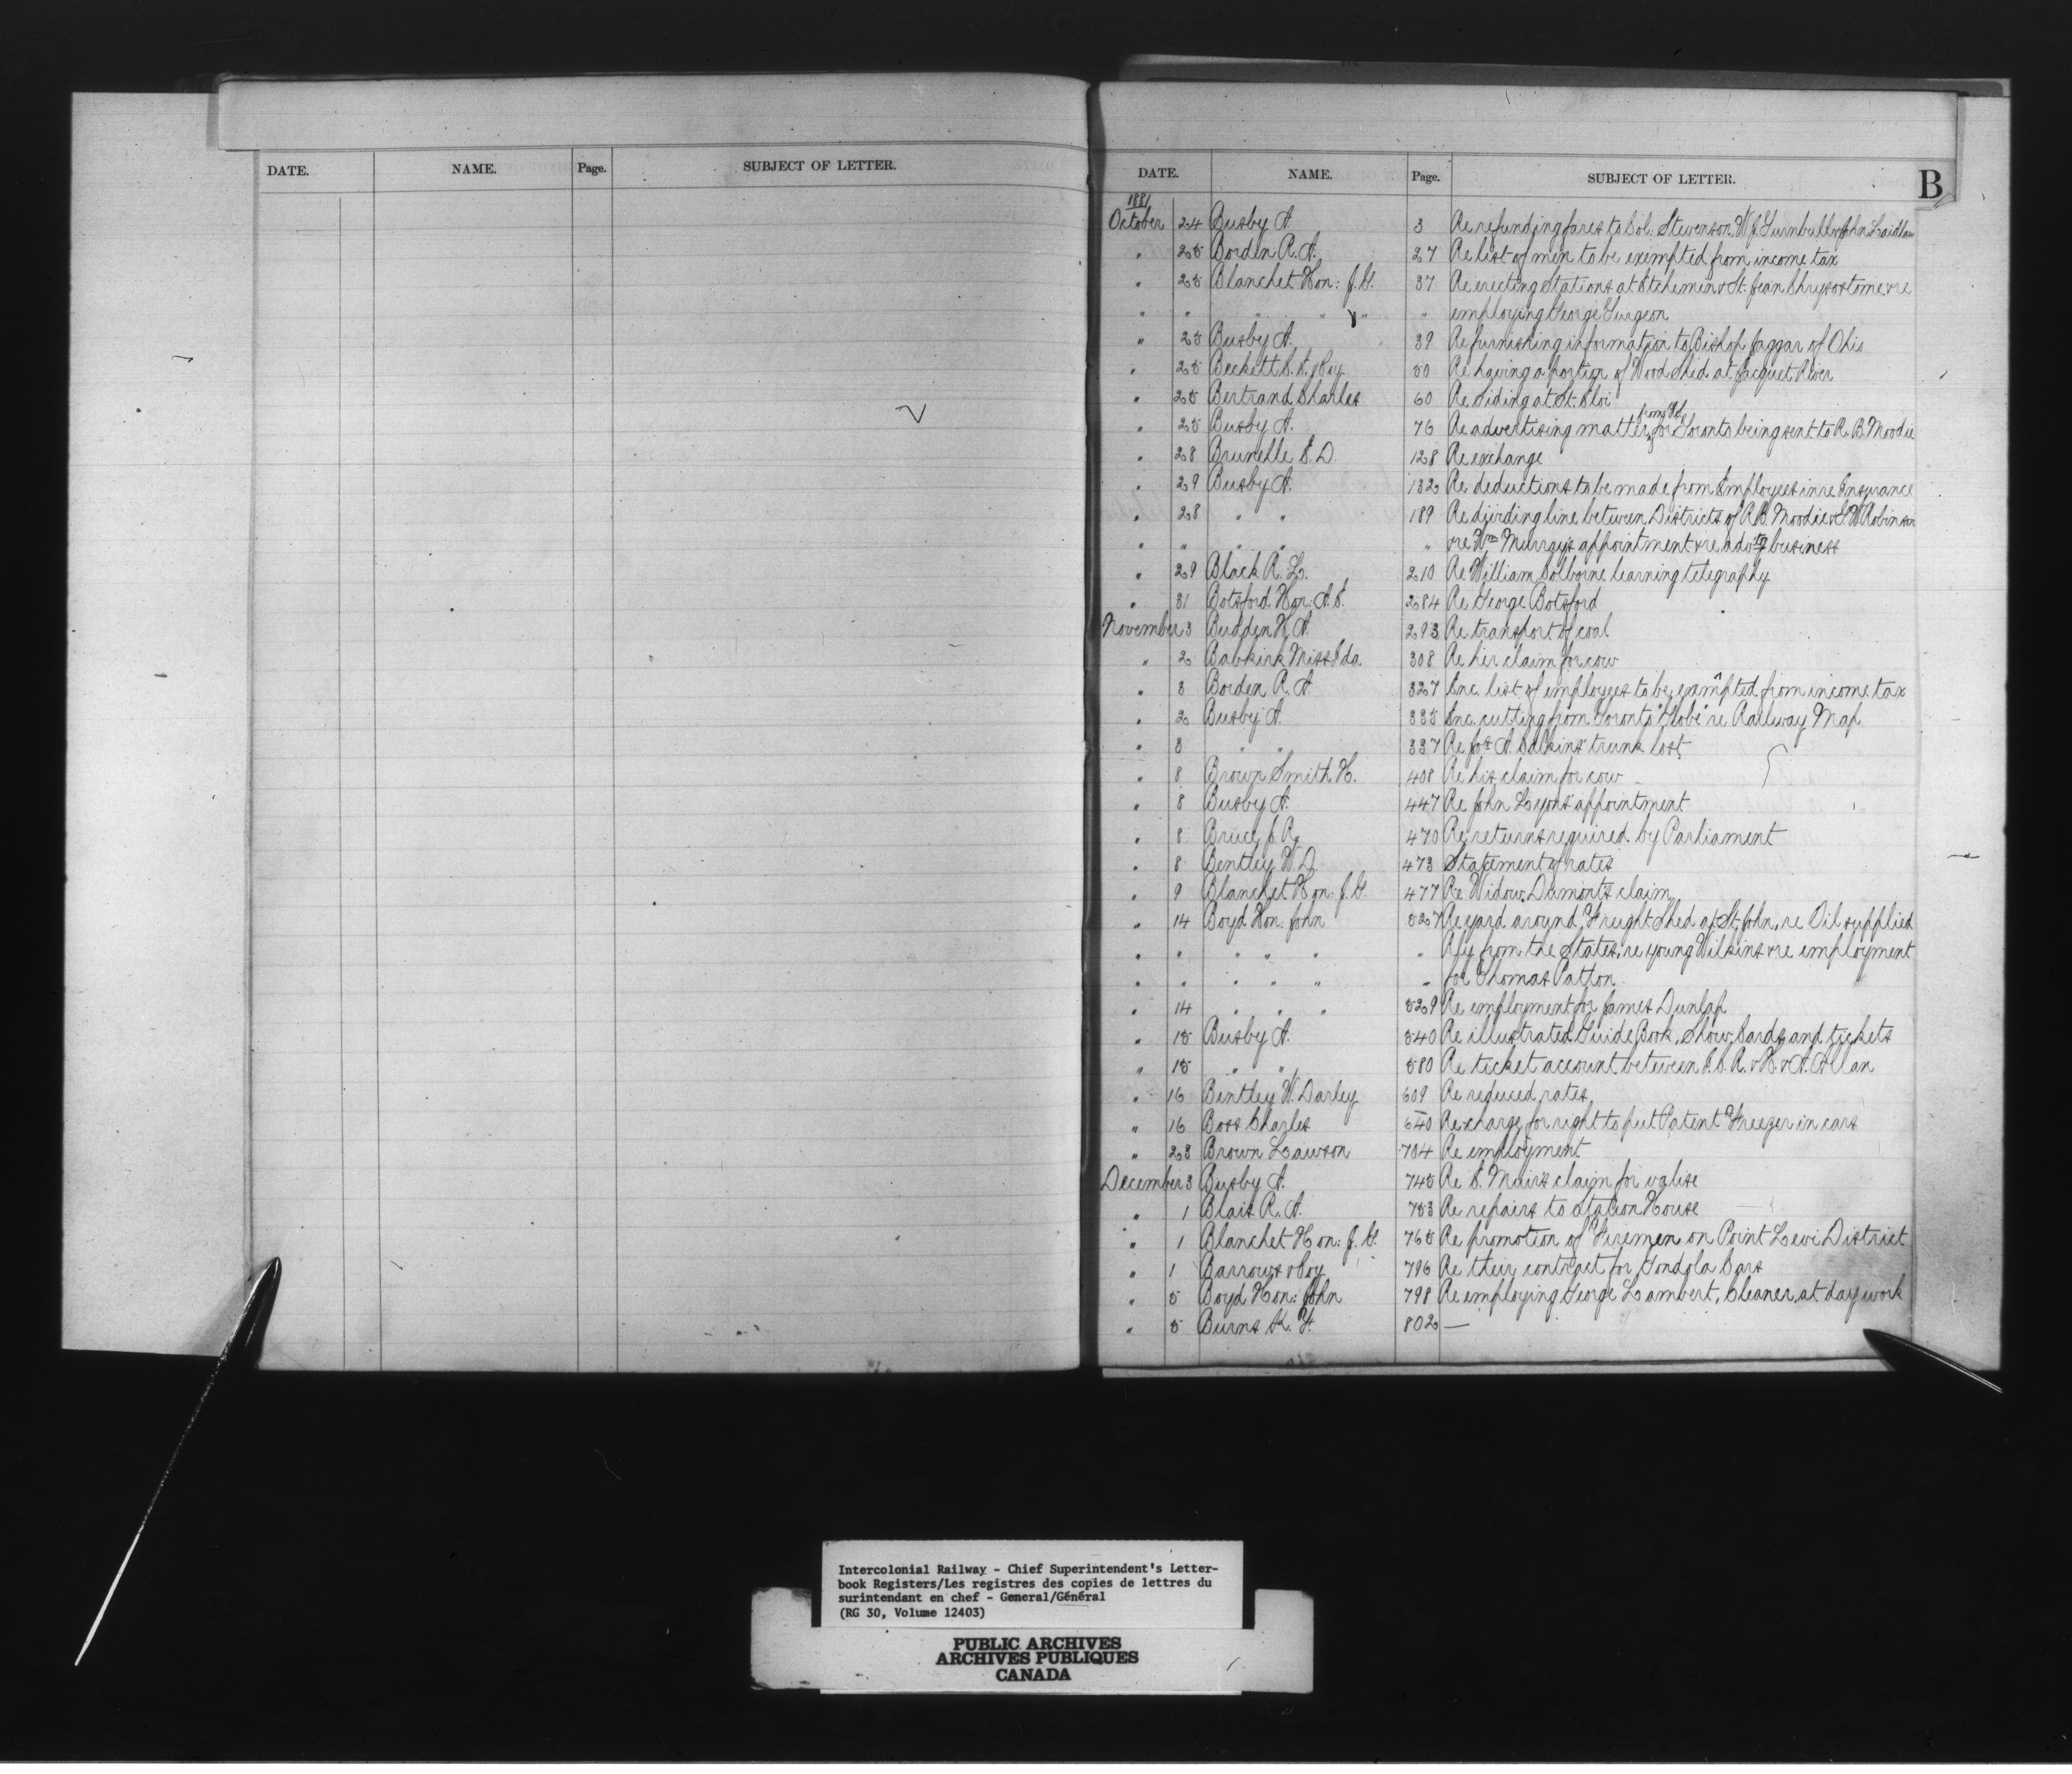 DATE. NAME. Page. SUBJECT OF LETTER.
DATE. NAME. Page. SUBJECT OF LETTER. B
1881
October 24 Busby A. 3 Re refunding fares to Sol. Stevenson, W.J. Turnbull & John Laidlaw
" 25 Borden R. A. 27 Re list of men to be exempted from income tax
" 25 Blanchet Hon: J. G. 37 Re erecting Stations at Etchemin & St. Jean Chrysostome & re
" " " " " " employing George Turgeon
" 25 Busby A. 39 Re furnishing information to Bishop Jaggar of Ohio
" 25 Beckett & Coy 50 Re having a portion of Wood Shed at Jacquet River
" 25 Bertrand Charles 60 Re Siding at St. Eloi
" 25 Busby A. 76 Re advertising matter for Toronto being sent to R. B. Moodie
" 28 Brunelle E. D. 128 Re exchange
" 29 Busby A. 132 Re deductions to be made from Employees in re Insurance
" 28 " " 189 Re dividing line between Districts of R. B. Moodie & S. W. Robinson
" " " " " & re Wm Murray's appointment & re advtg business
" 29 Black R. L. 210 Re William Colborne learning telegraphy
" 31 Botsford Hon: A. E. 284 Re George Botsford
November 3 Budden H. A. 293 Re transport of coal
" 2 Babkirk Miss Ida 308 Re her claim for cow
" 3 Borden R. A. 327 Enc. list of employees to be exempted from income tax
" 2 Busby A. 335 Enc. cutting from Toronto "Globe" re Railway Map
" 3 " " 337 Re A. Calkins' trunk lost
" 8 Brown Smith H. 408 Re his claim for cow
" 8 Busby A. 447 Re John Lyons' appointment
" 8 Bruce J. R. 470 Re returns required by Parliament
" 8 Bentley W. D. 473 Statement of rates
" 9 Blanchet Hon: J. G. 477 Re Widow Dumont's claim
" 14 Boyd Hon: John 527 Re yard around Freight Shed at St. John, re Oil supplied
" " " " " " Rly from the States, re young Wilkins & re employment
" " " " " " for Thomas Patton
" 14 " " " 529 Re employment for James Dunlap
" 15 Busby A. 540 Re illustrated Guide Book, Show Cards and tickets
" 15 " " 580 Re ticket account between I. C. R. & H. & A. Allan
" 16 Bentley W. Darley 609 Re reduced rates
" 16 Boss Charles 640 Re charge for right to put Patent Freezer in cars
" 23 Brown Lawson 704 Re employment
December 3 Busby A. 745 Re S. Muir's claim for valise
" 1 Blair R. A. 753 Re repairs to Station House
" 1 Blanchet Hon: J. G. 765 Re promotion of Firemen on Point Levi District
" 1 Barrows & Coy 796 Re their contract for Gondola Cars
" 5 Boyd Hon: John 798 Re employing George Lambert, Cleaner, at day work
" 5 Burns K. F. 802 —
Intercolonial Railway - Chief Superintendent's Letter-
book Registers/Les registres des copies de lettres du
surintendant en chef - General/Général
(RG 30, Volume 12403)
PUBLIC ARCHIVES
ARCHIVES PUBLIQUES
CANADA